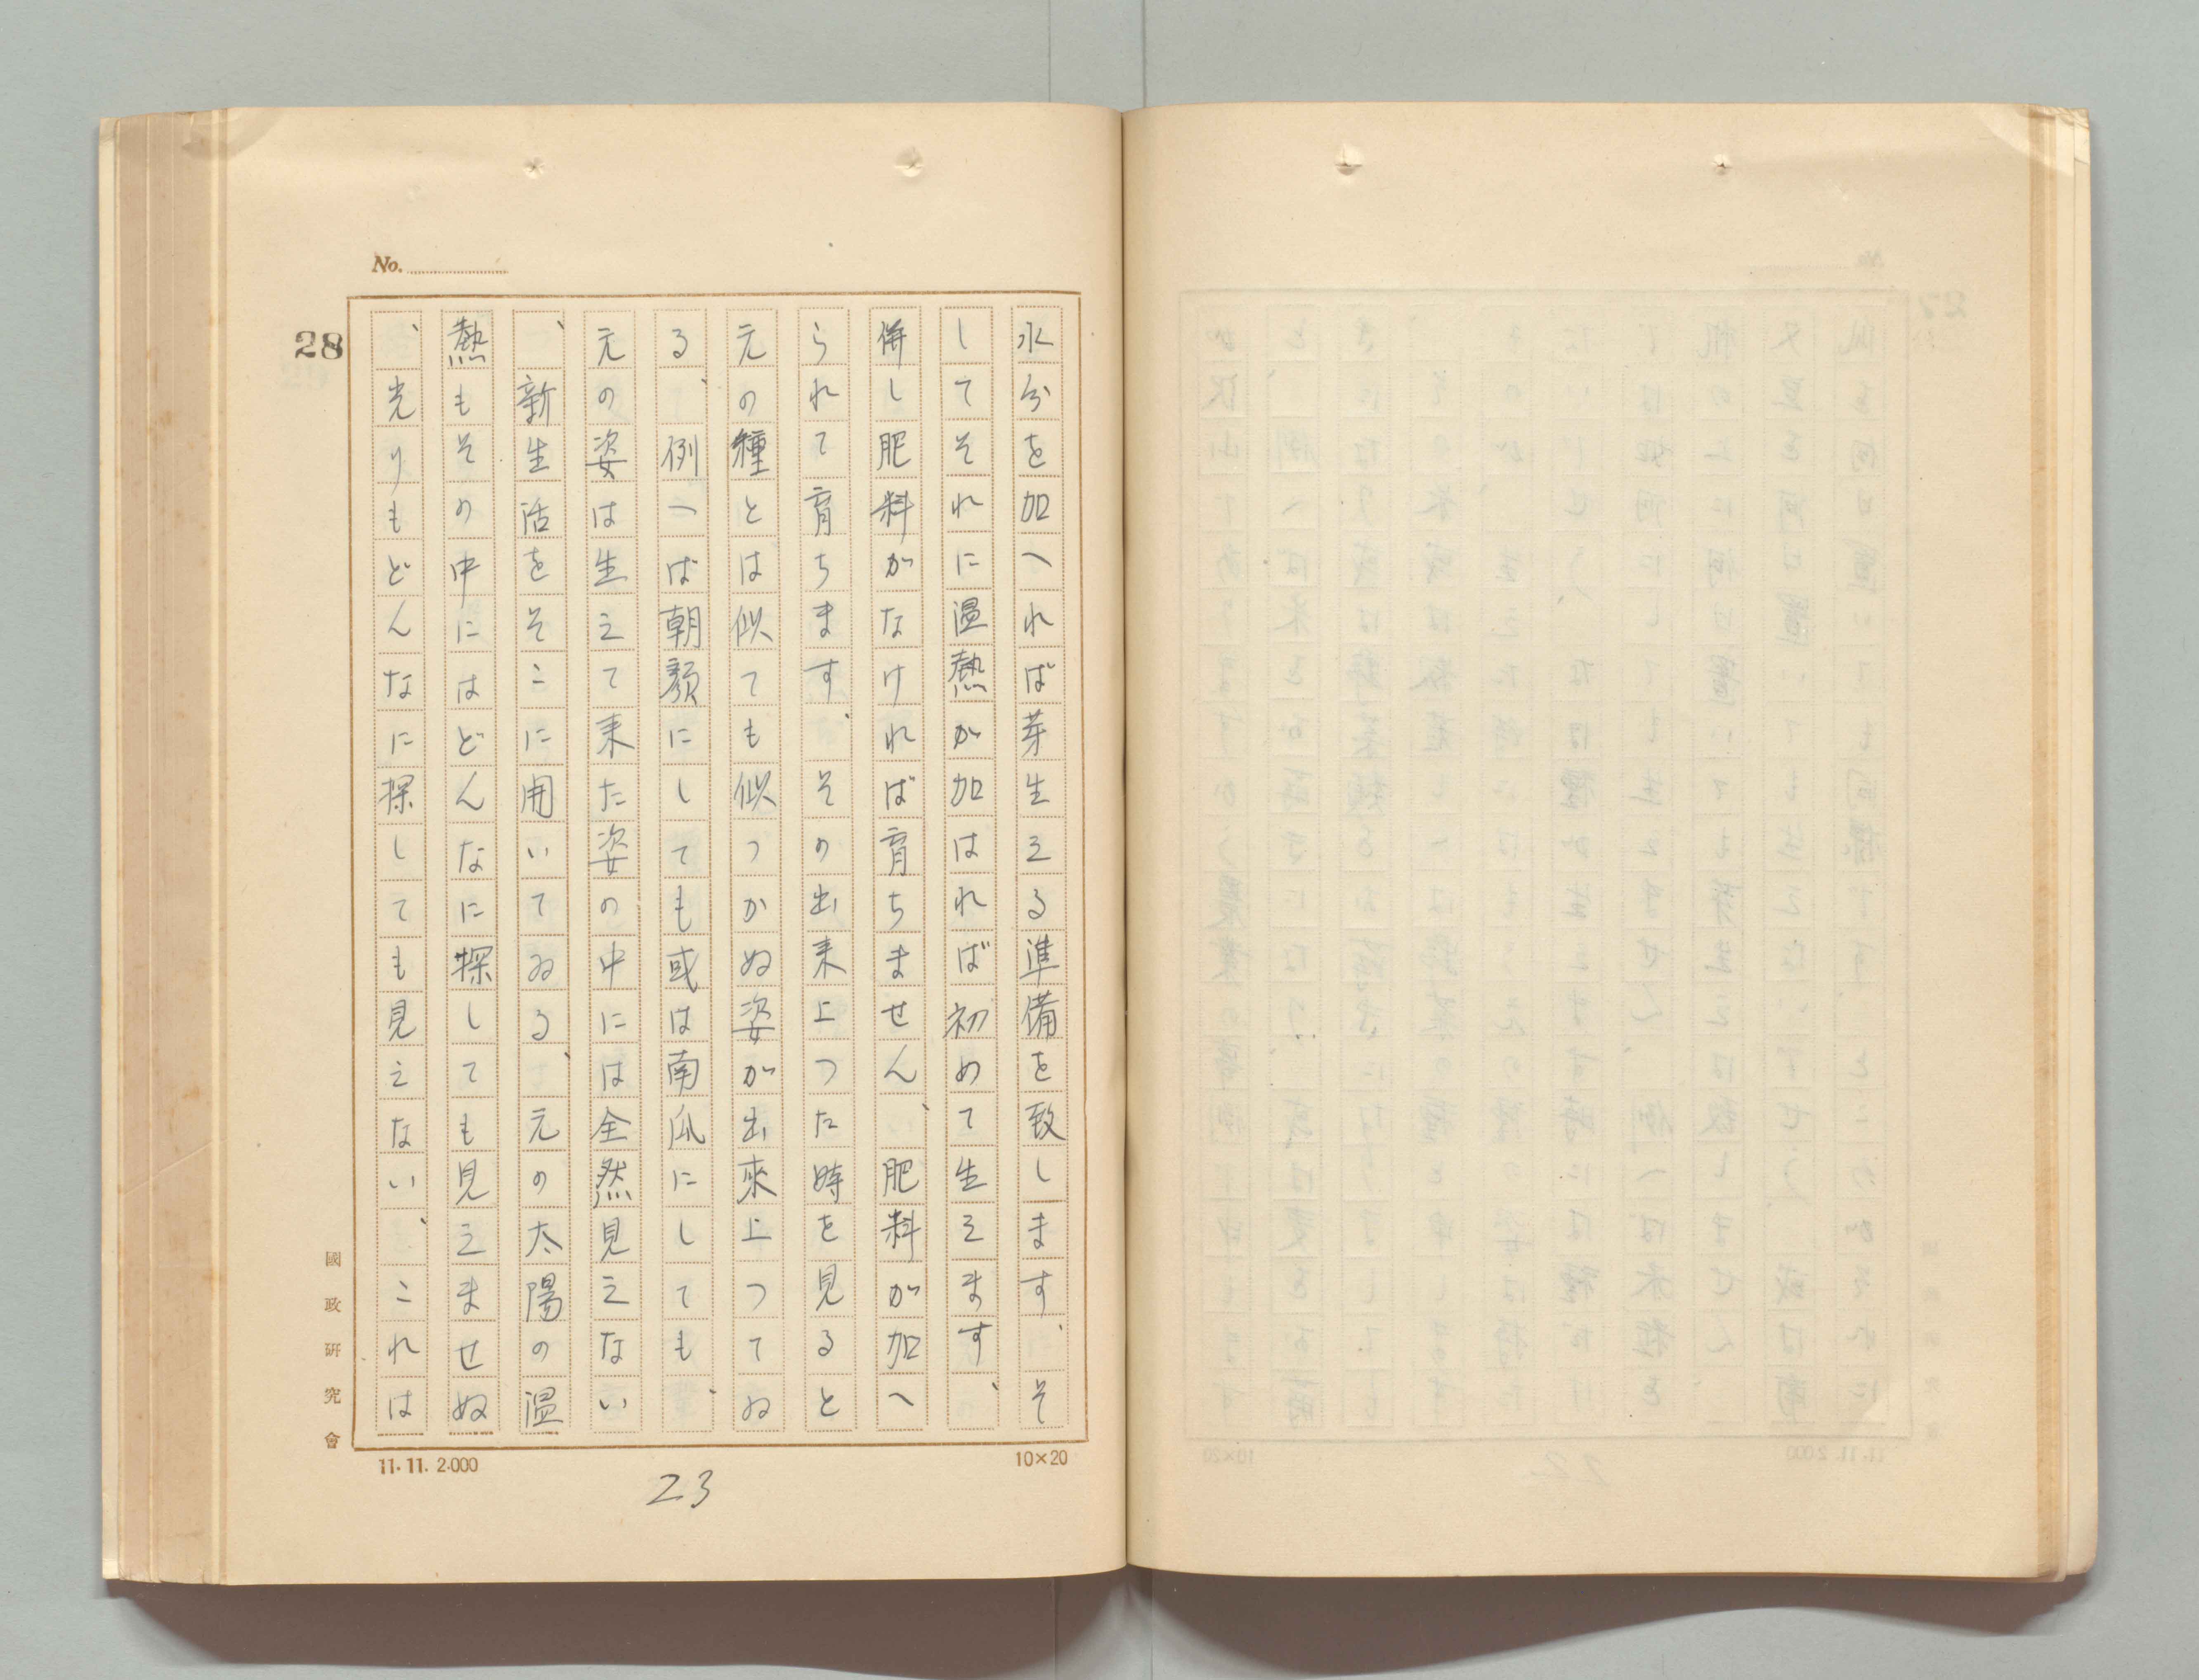 No.
28
水分を加へれば芽生える準備を致します、そ
してそれに温熱が加はれば初めて生えます、
併し肥料がなければ育ちません、肥料が加へ
られて育ちます、その出来上つた時を見ると
元の種とは似ても似つかぬ姿が出來上つてゐ
る、例へば朝顔にしても或は南瓜にしても、
元の姿は生えて来た姿の中には全然見えない
、新生活をそこに開いてゐる、元の太陽の温
熱もその中にはどんなに探しても見えませぬ
、光りもどんなに探しても見えない、これは
國政研究會
11.11.2.000
10×20
23